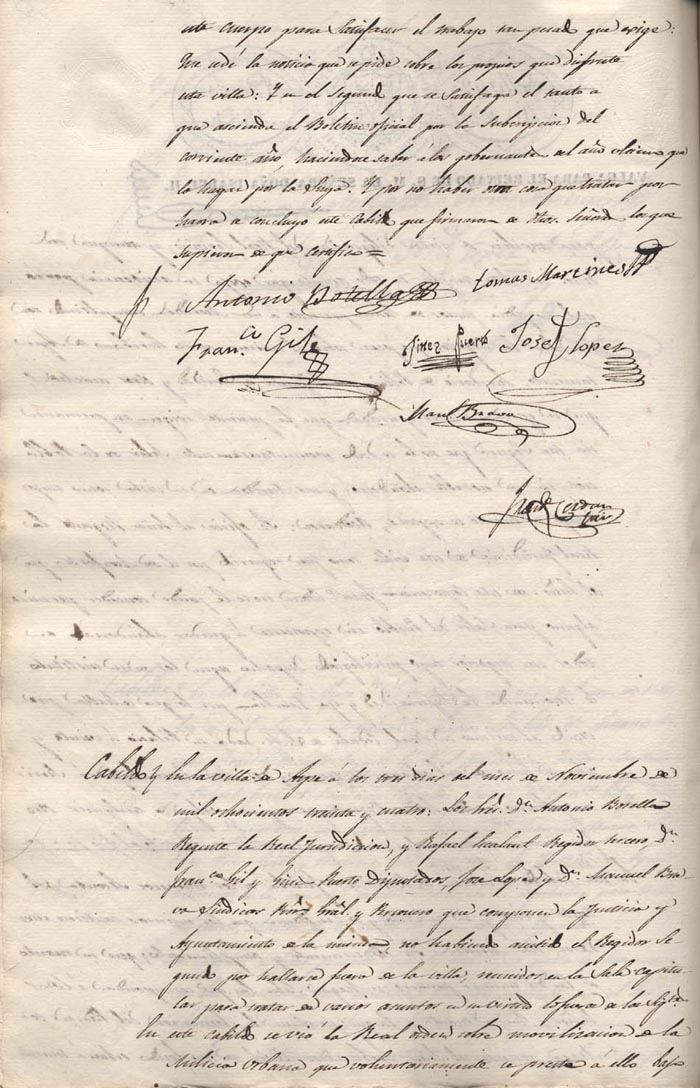 este cuerpo para satisfacer el trabajo tan pesad que exige:
se dé la noticia que se pide sobre los propios que disfruta
esta villa: Y en el segund que se satisfaga el tanto a
que ascienda el Boletin oficial por la subcripcion del
corriente año, haciendose saber á los gobernantes del año ultimo que
lo hagan por la suya. Y por no haber otra cosa que tratar por
haora se concluyo este Cabild que firmaron de dhos. Señores los que
supieron de que certifico =
Antonio Botella
tomas Martines
Fran.co Gil
Gines Puerto
Jose Lopez
Manl Bravo
Cabild
En la villa de Aspe á los tres dias del mes de Noviembre de
mil ochocientos treinta y cuatro: Los Sres. Dn. Antonio Botella
Regente la Real Juridicion, y Rafael Regidor tercero Dn.
Fran.co Gil y Gines Puerto Diputados, Jose Lopez y Dn. Manuel Bra-
vo Sindicos Pror. Gral. y Personero que componen la Justicia y
Ayuntamiento de la misma no habiend asistid el Regidor Se-
gund por hallarse fuera de la villa, reunidos en la Sala capitu-
lar para tratar de varios asuntos
En este cabild se vió la Real orden sobre movilizacion de la
Milicia Urbana que voluntariamente se preste á ello bajo